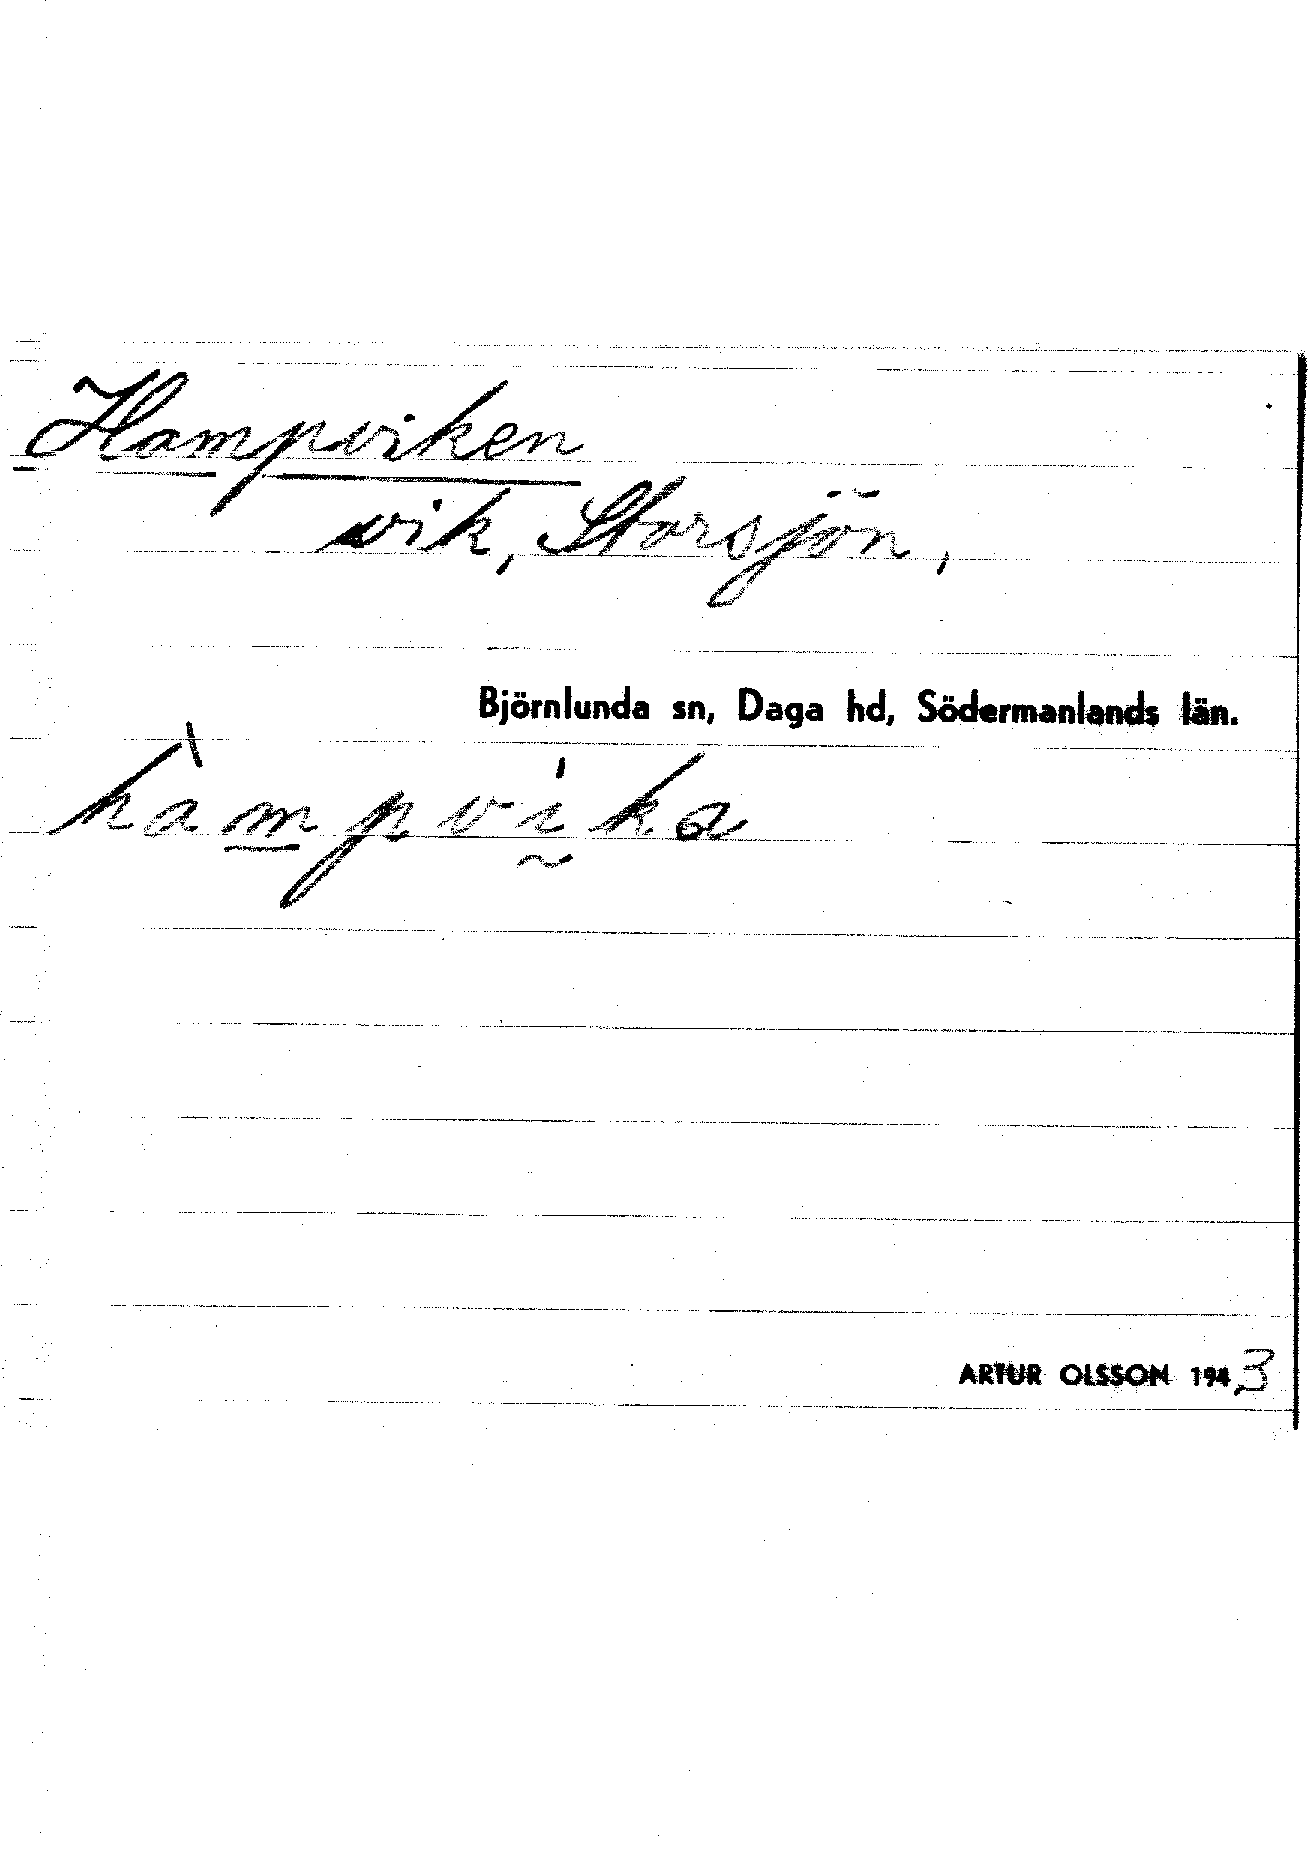 Hampviken
vik, Storsjön,
Björnlunda sn, Daga hd, Södermanlands län.
hàmpvíka
ARTUR OLSSON 1943